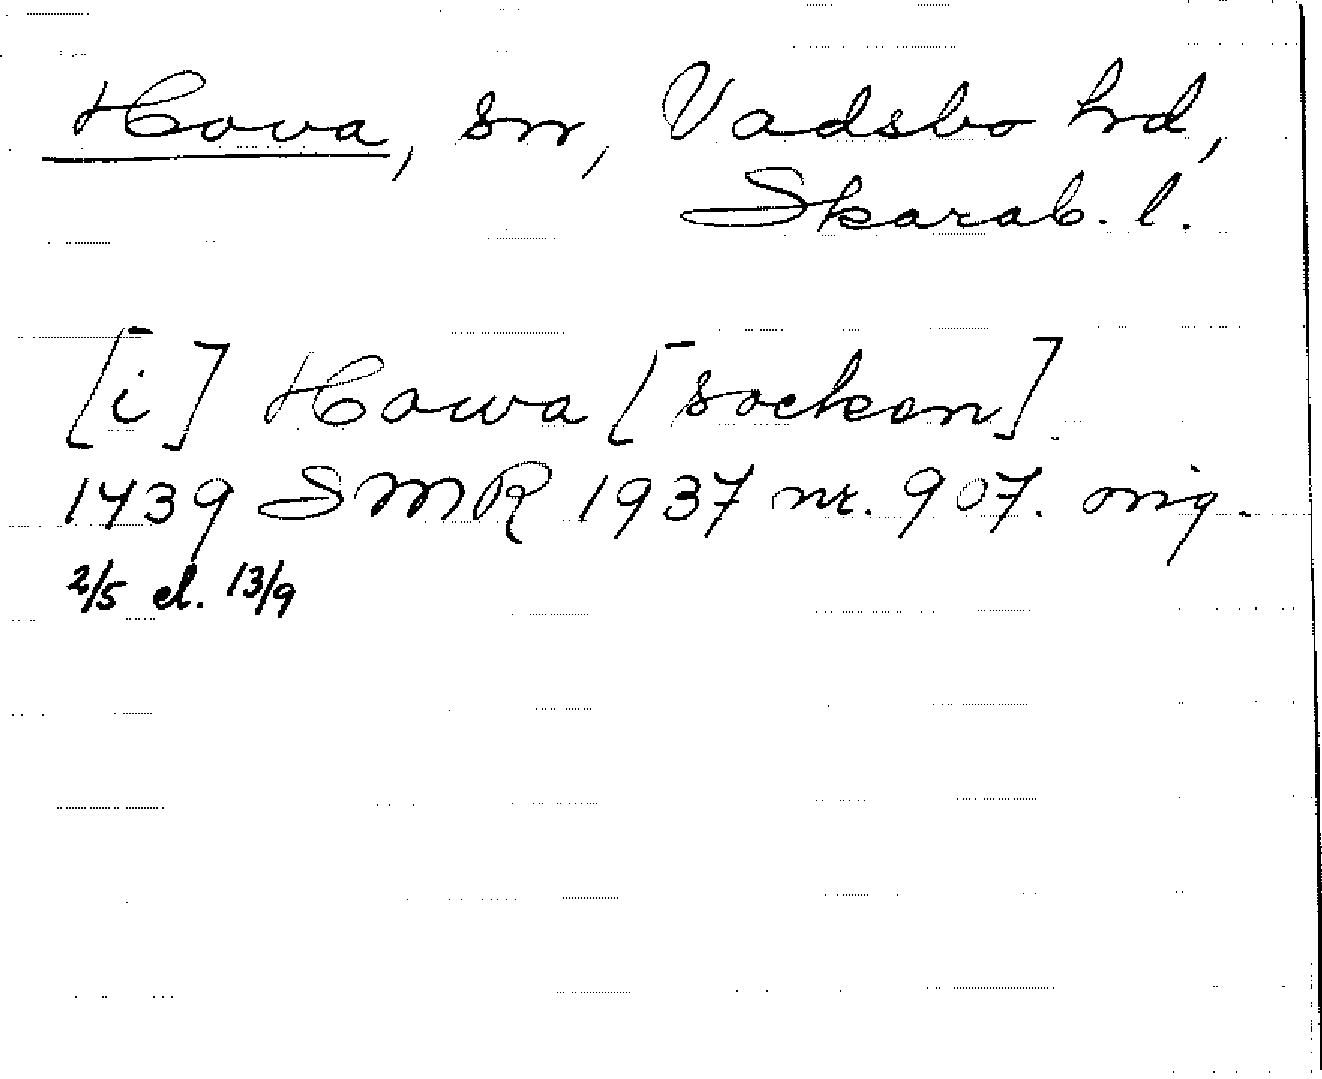 Hova, sn, Vadsbo hd,
Skarab. l.
[i] Howa [socken].
1439 SMR 1937 nr. 907. orig.
2/5 el. 13/9